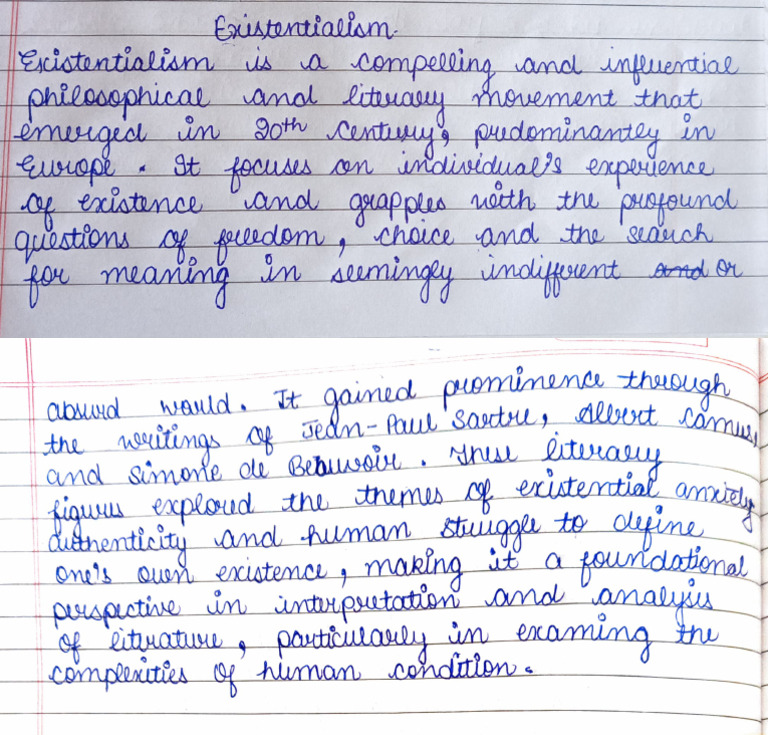 Existentialism
Existentialism is a compelling and influential
philosophical and literary movement that
emerged in 20th century, predominantly in
Europe. It focuses on individual's experience
of existence and grapples with the profound
questions of freedom, choice and the search
for meaning in seemingly indifferent and or
absurd world. It gained prominence through
the writings of Jean-Paul Sartre, Albert Camus,
and Simone de Beauvoir. These literary
figures explored the themes of existential anxiety
authenticity and human struggle to define
one's own existence, making it a foundational
perspective in interpretation and analysis
of literature, particularly in examing the
complexities of human condition.